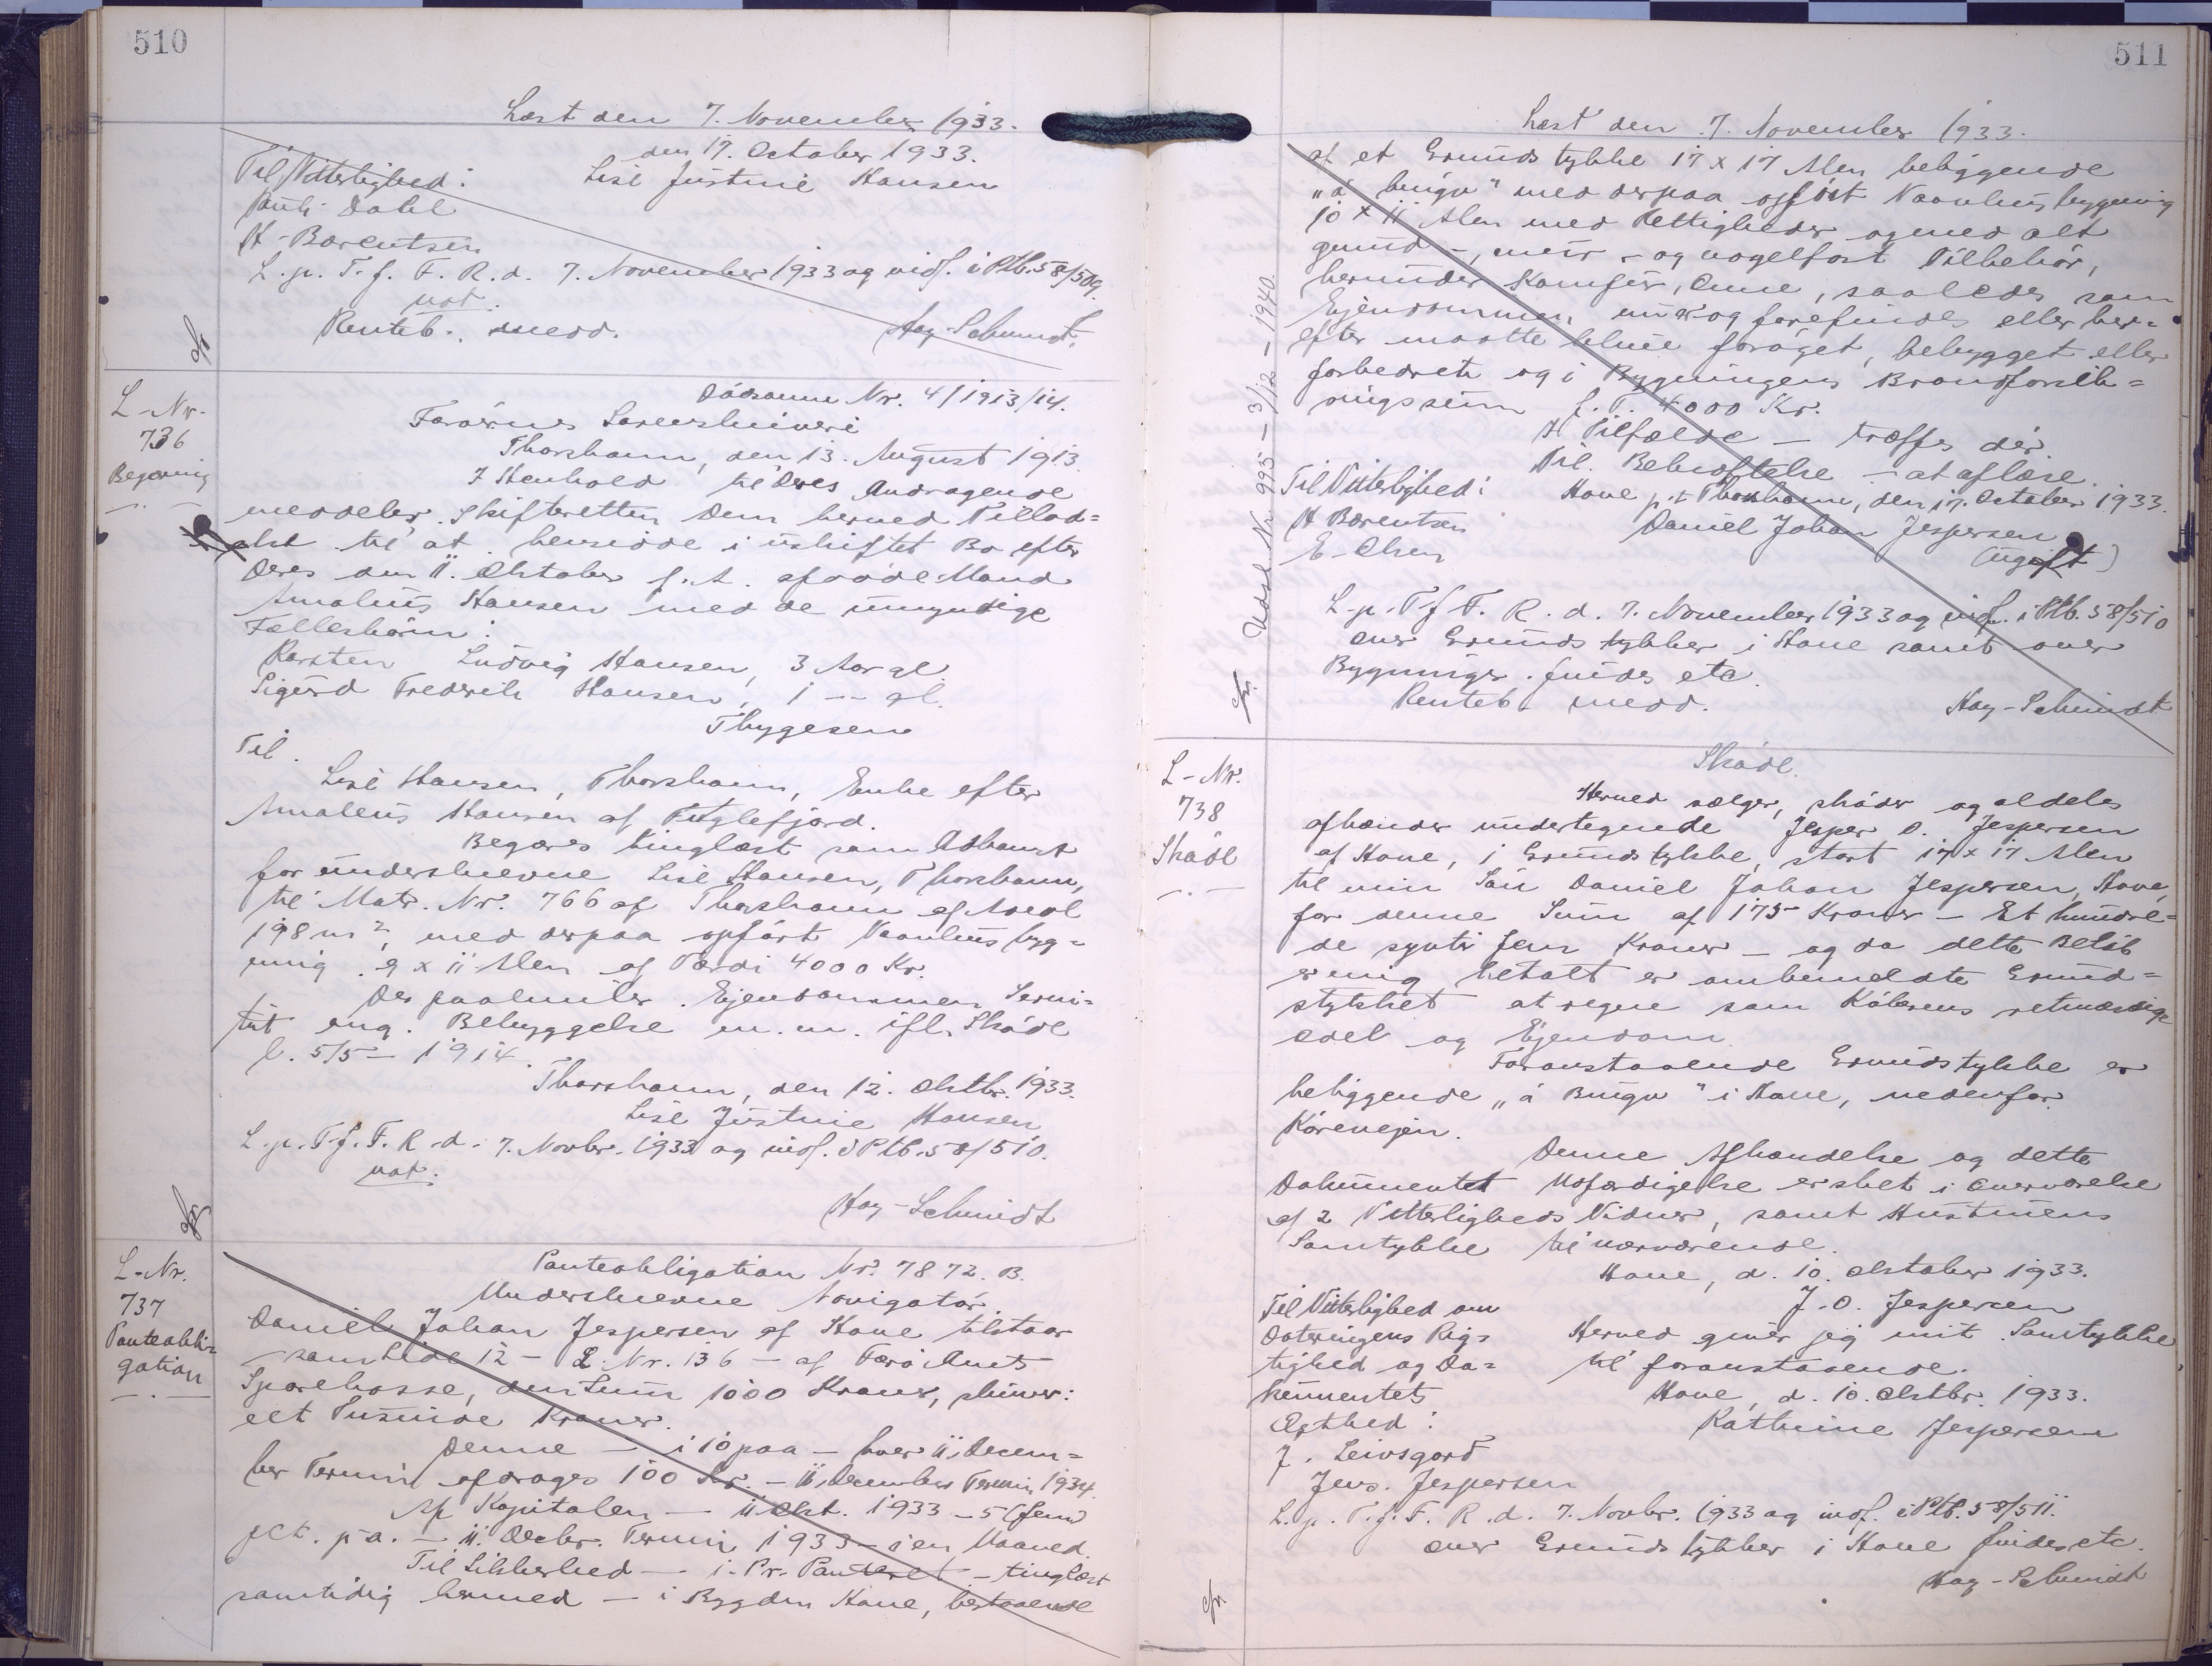 510
Læst den 7. November 1933.
den 17. October 1933.
Til Vitterlighed: Lisé Justine Hansen
Pauli Dahl
H. Bærentsen
L. p. T. f. F. R. d. 7. November 1933 og indf. i Ptb. 58/509.
not.
Renteb. medd. Hay-Schmidt.
L-Nr.
736
Begæring
Dødsanm. Nr. 4/1913/14.
Færøernes Sorenskriveri
Thorshavn, den 13. August 1913.
I Henhold til Deres Andragende
meddeler Skifteretten Dem herved Tillad=
else til at hensidde i uskiftet Bo efter
Deres den 11. Oktober f. A. afdøde Mand
Amalius Hansen med de umyndige
Fællesbørn:
Karsten Ludvig Hansen, 3 Aar gl.
Sigurd Frederik Hansen, 1 — gl.
Thygesen
Til.
Lisé Hansen, Thorshavn, Enke efter
Amaleus Hansen af Fuglefjord.
Begæres tinglæst som Adkomst
for underskrevne Lisé Hansen, Thorshavn,
til Matr. Nr. 766 af Thorshavn af Areal
198 m², med derpaa opført Vaaningsbyg=
ning 9 x 11 Alen af Værdi 4000 Kr.
Der paahviler Ejendommen Servi=
tut ang. Bebyggelse m. m. ifl. Skøde
l. 5/5 - 1914.
Thorshavn, den 12. Oktbr. 1933.
Lisé Justine Hansen
L. p. T. f. F. R. d. 7. Novbr. 1933 og indf. i Ptb. 58/510.
not.
Hay-Schmidt
L-Nr.
737
Panteobli=
gation
Panteobligation Nr. 7872. B.
Underskrevne Navigatør
Daniel Johan Jespersen af Hove tilstaar
samtidé 12 — L. Nr. 136 — af Færø Amts
Sparekasse, den Sum 1000 Kroner, skriver:
eet Tusinde Kroner.
Denne — i 10 paa — hver 11. Decem=
ber Termin afdrages 100 Kr. — 11. December Termin 1934.
Af Kapitalen — 11 Okt. 1933 — 5 (fem)
pct. p a. — 11. Decbr. Termin 1933 — i en Maaned.
Til Sikkerhed — 1. Pr. Panteret — tinglæst
samtidig hermed — i Bygden Hove, bestaaende
511
Læst den 7. November 1933.
af et Grundstykke 17 x 17 Alen beliggende
„á bingu" med derpaa opført Vaaningsbygning
10 x 11 Alen med Rettigheder og med alt
grund-, mur- og nagelfast Tilbehør,
herunder Komfur, Ovne, saaledes som
Ejendommen nu er og forefindes eller her=
efter maatte blive forøget, bebygget eller
forbedret og i Bygningens Brandforsik=
ringssum f. T. 4000 Kr.
I Tilfælde — træffes dér
Til Bekræftelse — at aflæse.
Til Vitterlighed: Hove p. t. Thorshavn, den 17. October 1933.
H Bærentsen Daniel Johan Jespersen
E. Olsen (ugift)
L. p. T. f. F. R. d. 7. November 1933 og indf. i Ptb. 58/510
over Grundstykker i Hove samt over
Bygninger findes etc.
Renteb. medd. Hay-Schmidt
Udsl. Nr. 995 - 3/12 - 1940.
L-Nr.
738
Skøde
Skøde.
Herved sælger, skøder og aldeles
afhænder undertegnede Jesper O. Jespersen
af Hove, 1 Grundstykke, stort 17 x 17 Alen
til min Søn Daniel Johan Jespersen, Hove,
for denne Sum af 175 Kroner — Et hundre=
de syvti fem Kroner — og da dette Beløb
er mig betalt er ombemeldte Grund=
stykket at regne som Køberens retmæssige
odel og Ejendom.
Foranstaaende Grundstykke er
beliggende „á Bingu" i Hove, nedenfor
Kørevejen.
Denne Afhændelse og dette
Dokumentet Udfærdigelse er sket i Overværelse
af 2 Vitterligheds Vidner, samt Hustruens
Samtykke til nærværende.
Hove, d. 10. Oktober 1933.
Til Vitterlighed om J. O. Jespersen
Dateringens Rig= Herved giver jeg mit Samtykke
tighed og Do= til foranstaaende.
kumentets Hove, d. 10. Oktbr. 1933.
Ægthed: Kathrine Jespersen
J. Leivsgard
Jens. Jespersen
L. p. T. f. F. R. d. 7. Novbr. 1933 og indf. i Ptb. 58/511.
over Grundstykker i Hove findes etc.
Hay-Schmidt